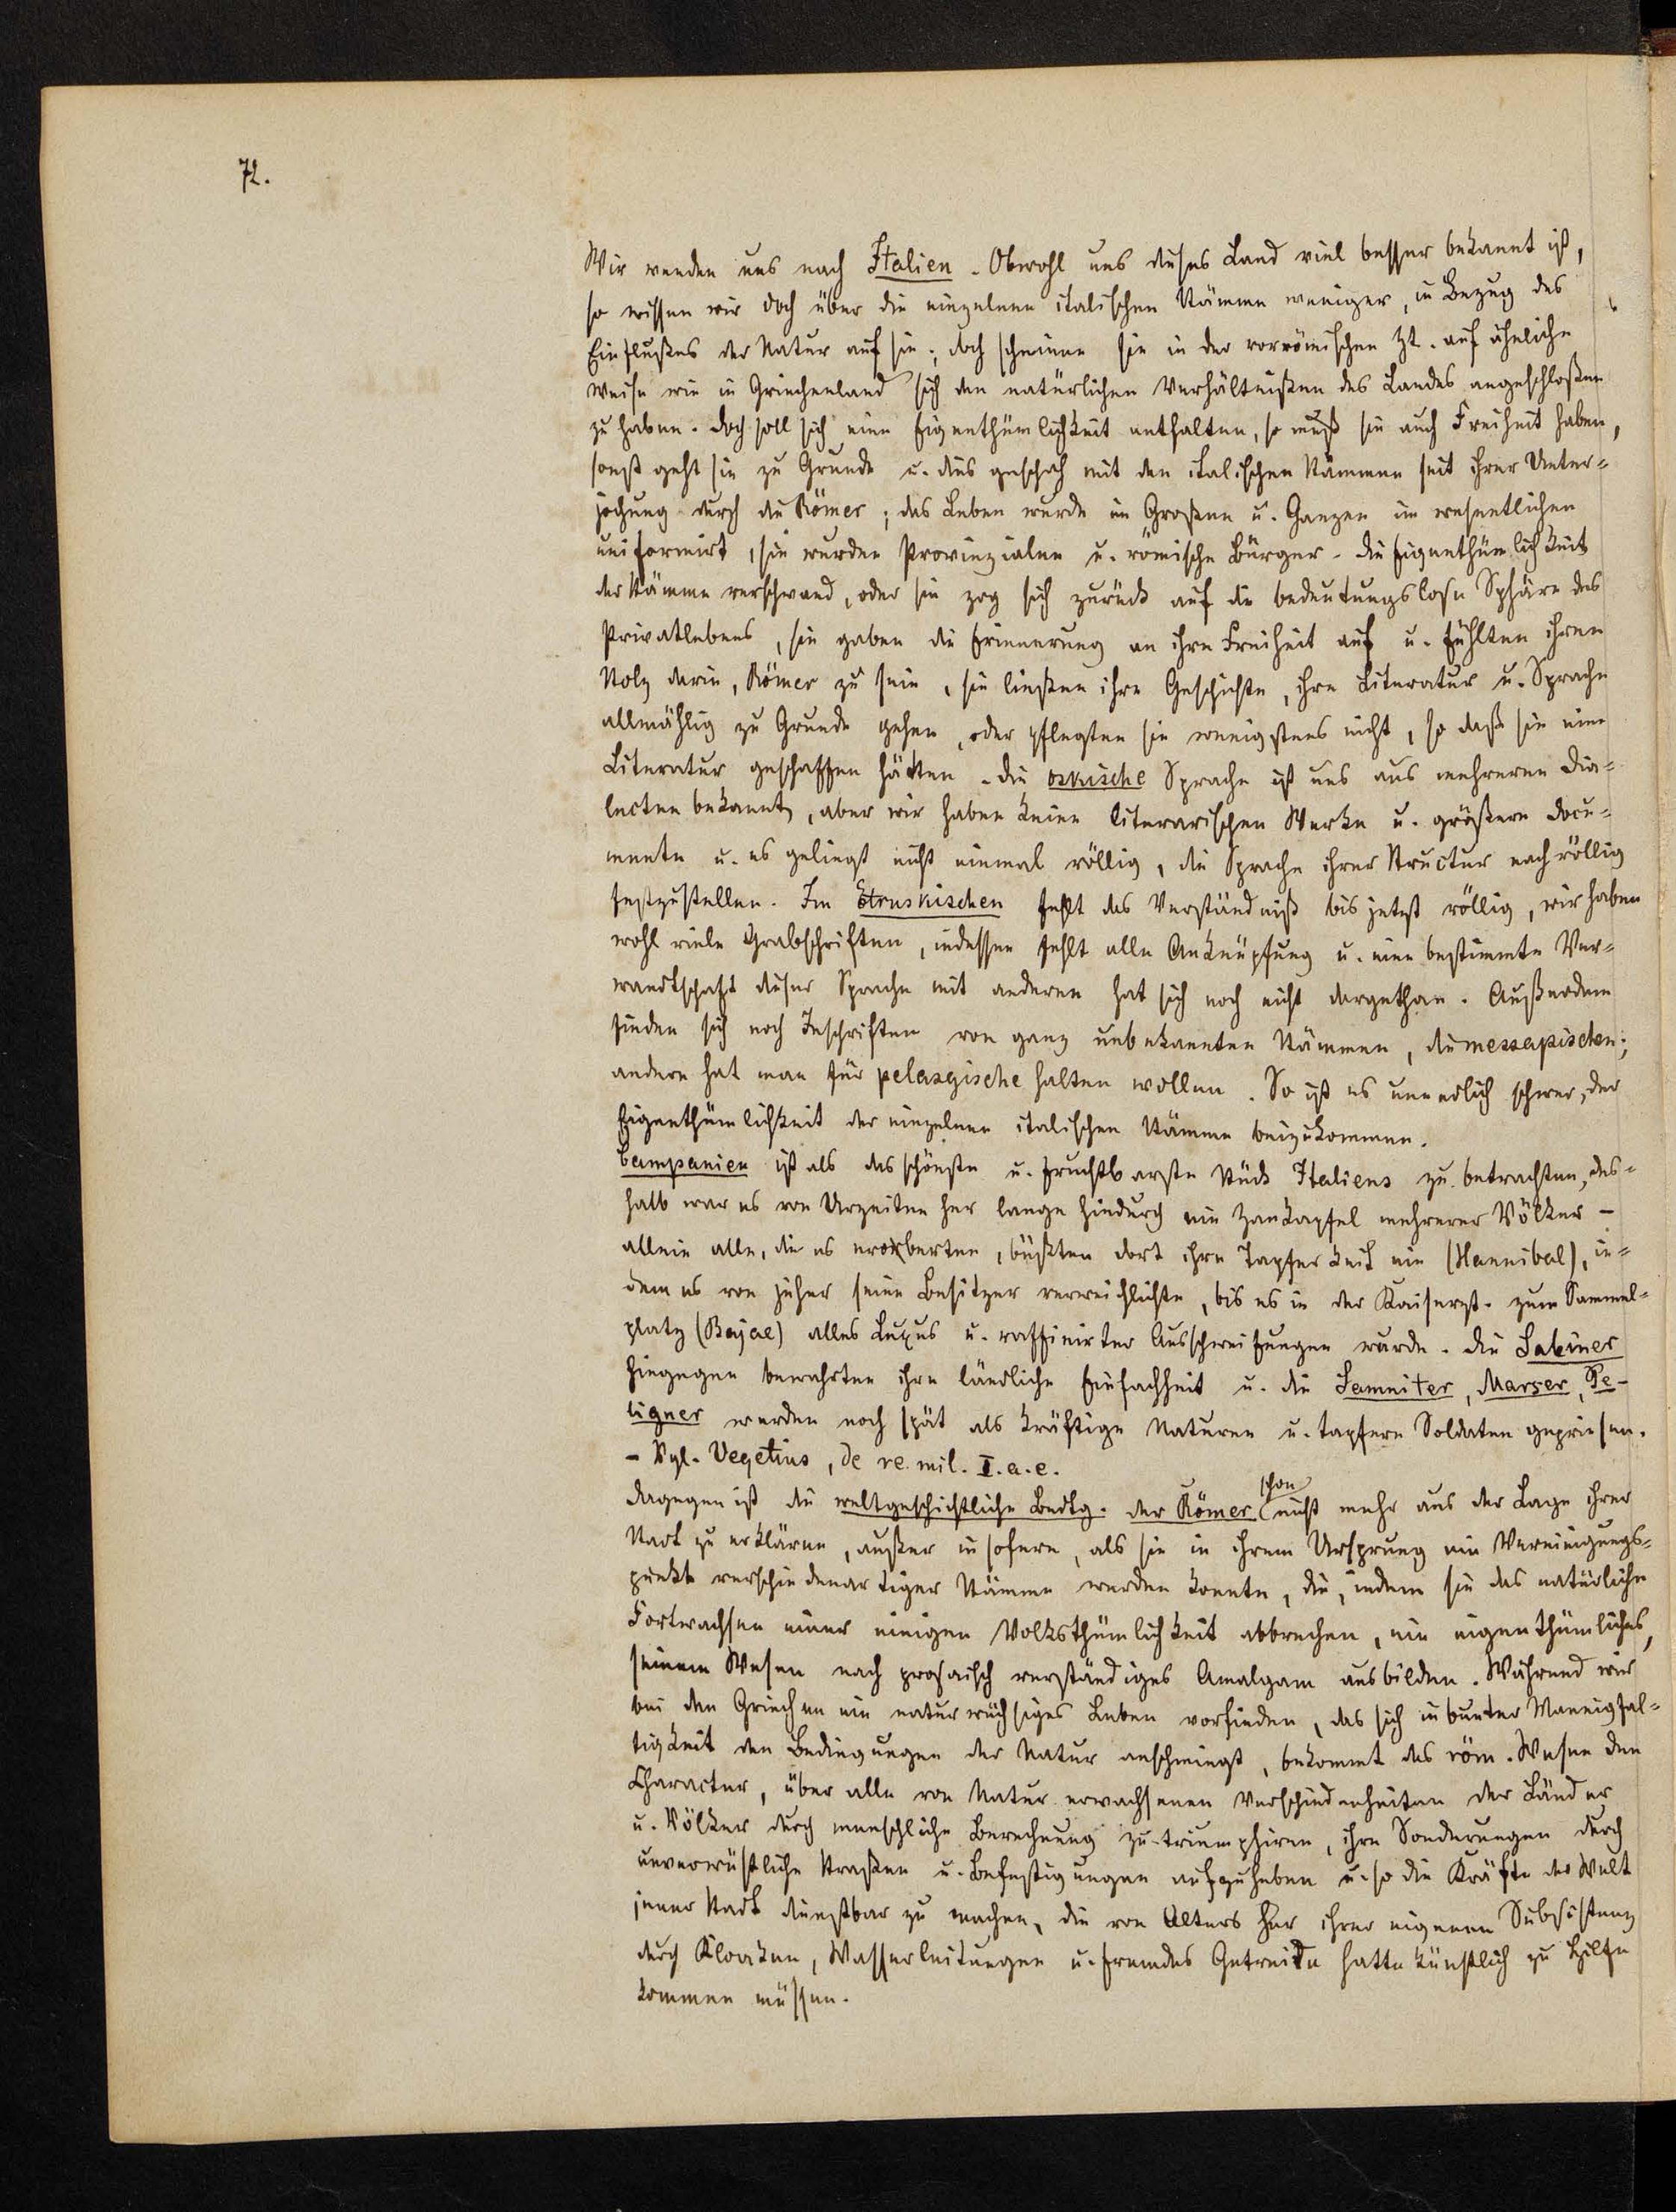 72.
Wir wenden uns nach Italien. Obwohl uns dieses Land viel besser bekannt ist,
so wissen wir doch über die einzelnen italischen Stämme weniger, in Bezug des
Einflußes der Natur auf sie; doch scheinen sie in der vorrömischen Zt. auf ähnliche
Weise wie in Griechenland sich den natürlichen Verhältnißen des Landes angeschloßen
zu haben. Doch soll sich eine Eigenthümlichkeit entfalten, so muß sie auch Freiheit haben,
sonst geht sie zu Grunde u. dies geschah mit den italischen Stämmen seit ihrer Unter=
jochung durch die Römer; das Leben wurde im Großen u. Ganzen im wesentlichen
uniformirt, sie wurden Provinzialen u. römische Bürger. Die Eigenthümlichkeit
der Stämme verschwand, oder sie zog sich zurück auf die bedeutungslose Sphäre des
Privatlebens, sie gaben die Erinnerung an ihre Freiheit auf u. fühlten ihren
Stolz darin, Römer zu sein, sie ließen ihre Geschichte, ihre Literatur u. Sprache
allmählig zu Grunde gehen, oder pflegten sie wenigstens nicht, so daß sie eine
Literatur geschaffen hätten. Die oskische Sprache ist uns aus mehreren Dia=
lecten bekannt, aber wir haben keine literarischen Werke u. größere Docu=
mente u. es gelingt nicht einmal völlig, die Sprache ihrer Structur nach völlig
festzustellen. Im Etruskischen fehlt das Verständniß bis jetzt völlig, wir haben
wohl viele Grabschriften, indessen fehlt alle Anknüpfung u. eine bestimmte Ver=
wandtschaft dieser Sprache mit anderen hat sich noch nicht dargethan. Außerdem
finden sich noch Inschriften von ganz unbekannten Stämmen, die messapischen;
andere hat man für pelasgische halten wollen. So ist es unendlich schwer, der
Eigenthümlichkeit der einzelnen italischen Stämme beizukommen.
Campanien ist als das schönste u. fruchtbarste Stück Italiens zu betrachten, des=
halb war es von Urzeiten her lange hindurch ein Zankapfel mehrerer Völker –
allein alle, die es eroberten, büßten dort ihre Tapferkeit ein (Hannibal), in=
dem es von jeher seine Besitzer verweichlichte, bis es in der Kaiserzt. zum Sammel=
platz (Bajae) alles Luxus u. raffinirter Ausschweifungen wurde. Die Sabiner
hingegen bewahrten ihre ländliche Einfachheit u. die Samniter, Marser, Pe-
ligner werden noch spät als kräftige Naturen u. tapfere Soldaten gepriesen.
– Vgl. Vegetius, de re. mil. I. a. e.
Dagegen ist die weltgeschichtliche Bedtg. der Römer schon nicht mehr aus der Lage ihrer
Stadt zu erklären, außer in sofern, als sie in ihrem Ursprung ein Vereinigungs=
punkt verschiedenartiger Stämme werden konnte, die, indem sie das natürliche
Fortwachsen einer einigen Volksthümlichkeit abbrechen, ein eigenthümliches,
seinem Wesen nach prosaisch verständiges Amalgam ausbilden. Während wir
bei den Griechen ein naturwüchsiges Leben vorfinden, das sich in bunter Mannigfal=
tigkeit den Bedingungen der Natur anschmiegt, bekommt das röm. Wesen den
Character, über alle von Natur erwachsenen Verschiedenheiten der Länder
u. Völker durch menschliche Berechnung zu triumphiren, ihre Sonderungen durch
unverwüstliche Straßen u. Befestigungen aufzuheben u. so die Kräfte der Welt
jener Stadt dienstbar zu machen, die von Alters her ihrer eigenen Subsistenz
durch Kloaken, Wasserleitungen u. fremdes Getreide hatte künstlich zu Hilfe
kommen müssen.